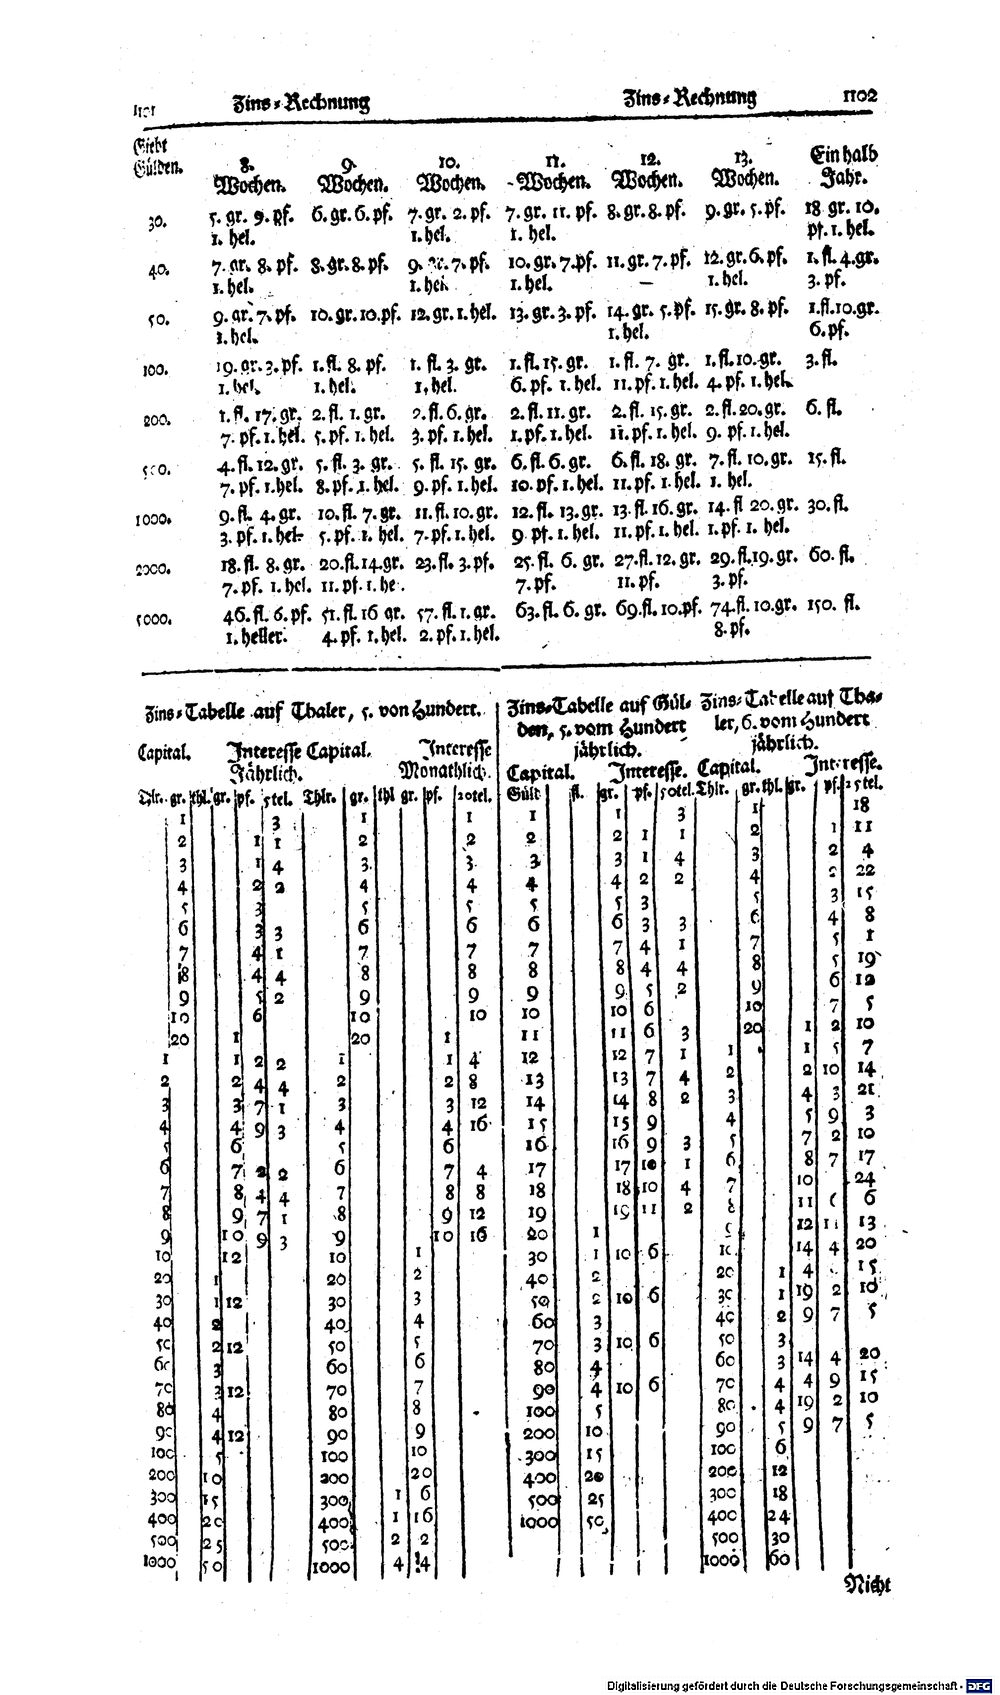 1101 Zins-Rechnung Zins-Rechnung 1102
Giebt
Gülden. 8. Wochen. 9. Wochen. 10. Wochen. 11. Wochen. 12. Wochen. 13. Wochen. Ein halb Jahr.
30. 5. gr. 9. pf. 6. gr. 6. pf. 7. gr. 2. pf. 7. gr. 11. pf. 8. gr. 8. pf. 9. gr. 5. pf. 18 gr. 10.
1. hel. 1. hel. 1. hel. pf. 1. hel.
40. 7. gr. 8. pf. 8. gr. 8. pf. 9. gr. 7. pf. 10. gr. 7. pf. 11. gr. 7. pf. 12. gr. 6. pf. 1. fl. 4. gr.
1. hel. 1. hel. 1. hel. 1. hel. 3. pf.
50. 9. gr. 7. pf. 10. gr. 10. pf. 12. gr. 1. hel. 13. gr. 3. pf. 14. gr. 5. pf. 15. gr. 8. pf. 1. fl. 10. gr.
1. hel. 1. hel. 6. pf.
100. 19. gr. 3. pf. 1. fl. 8. pf. 1. fl. 3. gr. 1. fl. 15. gr. 1. fl. 7. gr. 1. fl. 10. gr. 3. fl.
1. hel. 1. hel. 1. hel. 6. pf. 1. hel. 11. pf. 1. hel. 4. pf. 1. hel.
200. 1. fl. 17. gr. 2. fl. 1. gr. 2. fl. 6. gr. 2. fl. 11. gr. 2. fl. 15. gr. 2. fl. 20. gr. 6. fl.
7. pf. 1. hel. 5. pf. 1. hel. 3. pf. 1. hel. 1. pf. 1. hel. 11. pf. 1. hel. 9. pf. 1. hel.
500. 4. fl. 12. gr. 5. fl. 3. gr. 5. fl. 15. gr. 6. fl. 6. gr. 6. fl. 18. gr. 7. fl. 10. gr. 15. fl.
7. pf. 1. hel. 8. pf. 1. hel. 9. pf. 1. hel. 10. pf. 1. hel. 11. pf. 1. hel. 1. hel.
1000. 9. fl. 4. gr. 10. fl. 7. gr. 11. fl. 10. gr. 12. fl. 13. gr. 13. fl. 16. gr. 14. fl 20. gr. 30. fl.
3. pf. 1. hel. 5. pf. 1. hel. 7. pf. 1. hel. 9 pf. 1. hel. 11. pf. 1. hel. 1. pf. 1. hel.
2000. 18. fl. 8. gr. 20. fl. 14. gr. 23. fl. 3. pf. 25. fl. 6. gr. 27. fl. 12. gr. 29. fl. 19. gr. 60. fl.
7. pf. 1. hel. 11. pf. 1. he. 7. pf. 11. pf. 3. pf.
5000. 46. fl. 6. pf. 51. fl. 16 gr. 57. fl. 1. gr. 63. fl. 6. gr. 69. fl. 10. pf. 74. fl. 10. gr. 150. fl.
1. heller. 4. pf. 1. hel. 2. pf. 1. hel. 8. pf.
Zins-Tabelle auf Thaler, 5. von Hundert.
Capital. Interesse Jährlich. Capital. Interesse Monathlich.
Thlr. gr. thl. gr. pf. 5tel. Thlr. gr. thl gr. pf. 20tel.
1 3 1 1
2 1 1 2 2
3 1 4 3 3
4 2 2 4 4
5 3 5 5
6 3 3 6 6
7 4 1 7 7
8 4 4 8 8
9 5 2 9 9
10 6 10 10
20 1 20 1
1 1 2 2 1 1 4
2 2 4 4 2 2 8
3 3 7 1 3 3 12
4 4 9 3 4 4 16
5 6 5 6
6 7 2 2 6 7 4
7 8 4 4 7 8 8
8 9 7 1 8 9 12
9 10 9 3 9 10 16
10 12 10 1
20 1 20 2
30 1 12 30 3
40 2 40 4
50 2 12 50 5
60 3 60 6
70 3 12 70 7
80 4 80 8
90 4 12 90 9
100 5 100 10
200 10 200 20
300 15 300 1 6
400 20 400 1 16
500 25 500 2 2
1000 50 1000 4 4
Zins-Tabelle auf Gül-
den, 5. vom Hundert
jährlich.
Capital. Interesse.
Güld fl. gr. pf. 50tel.
1 1 3
2 2 1 1
3 3 1 4
4 4 2 2
5 5 3
6 6 3 3
7 7 4 1
8 8 4 4
9 9 5 2
10 10 6
11 11 6 3
12 12 7 1
13 13 7 4
14 14 8 2
15 15 9
16 16 9 3
17 17 10 1
18 18 10 4
19 19 11 2
20 1
30 1 10 6
40 2
50 2 10 6
60 3
70 3 10 6
80 4
90 4 10 6
100 5
200 10
300 15
400 20
500 25
1000 50
Zins-Tabelle auf Tha-
ler, 6. vom Hundert
jährlich.
Capital. Interesse.
Thlr. gr. thl. gr. pf. 25tel.
1 18
2 1 11
3 2 4
4 2 22
5 3 15
6 4 8
7 5 1
8 5 19
9 6 12
10 7 5
20 1 2 10
1 1 5 7
2 2 10 14
3 4 3 21
4 5 9 3
5 7 2 10
6 8 7 17
7 10 24
8 11 6
12 11 13
10 14 4 20
20 1 4 15
30 1 19 2 10
40 2 9 7 5
50 3
60 3 14 4 20
70 4 4 9 15
80 4 19 2 10
90 5 9 7 5
100 6
200 12
300 18
400 24
500 30
1000 60
Nicht
Digitalisierung gefördert durch die Deutsche Forschungsgemeinschaft - DFG